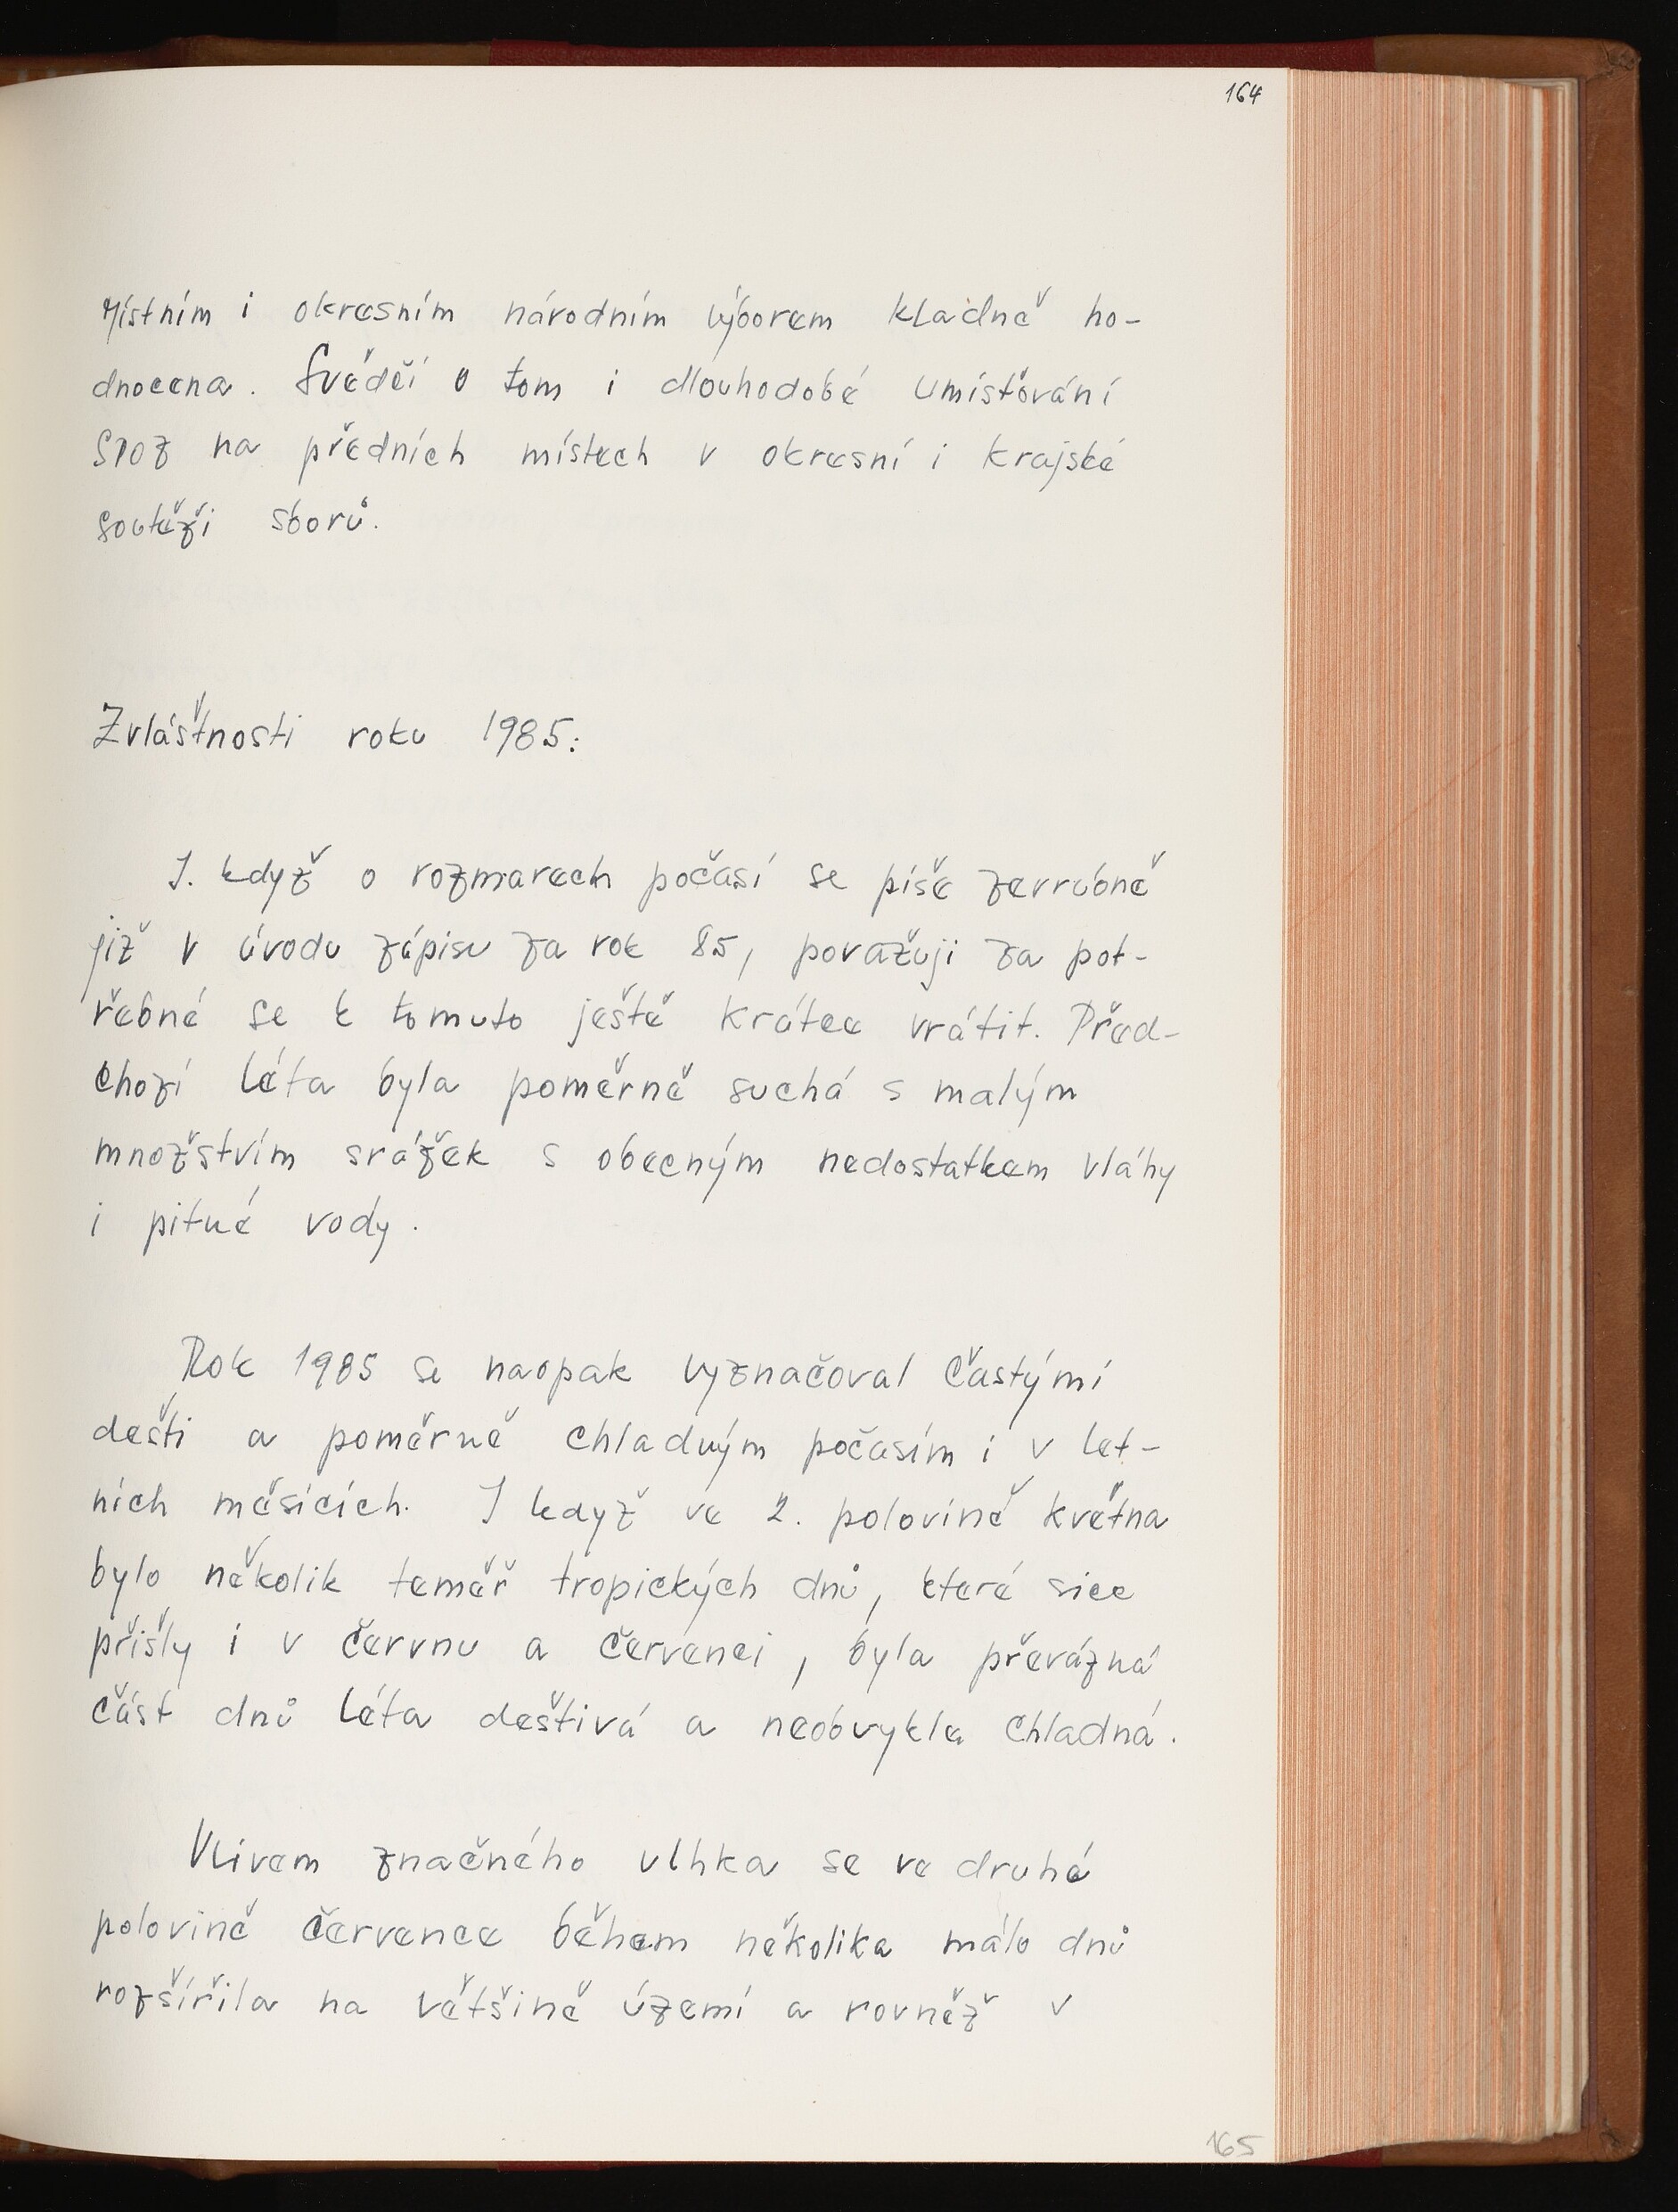 164
Místním i okresním národním výborem kladně ho-
dnocena. Svědčí o tom i dlouhodobé umísťování
SPOZ na předních místech v okresní i krajské
soutěži sborů.
Zvláštnosti roku 1985:
I. když o rozmarech počasí se píše zevrubně
již v úvodu zápisu za rok 85, považuji za pot-
řebné se k tomuto ještě krátce vrátit. Před-
chozí léta byla poměrně suchá s malým
množstvím srážek s obecným nedostatkem vláhy
i pitné vody.
Rok 1985 se naopak vyznačoval častými
dešti a poměrně chladným počasím i v let-
ních měsících. I když ve 2. polovině května
bylo několik téměř tropických dnů, které sice
přišly i v červnu a červenci, byla převážná
část dnů léta deštivá a neobvykle chladná.
Vlivem značného vlhka se ve druhé
polovině července během několika málo dnů
rozšířila na většině území a rovněž v
165